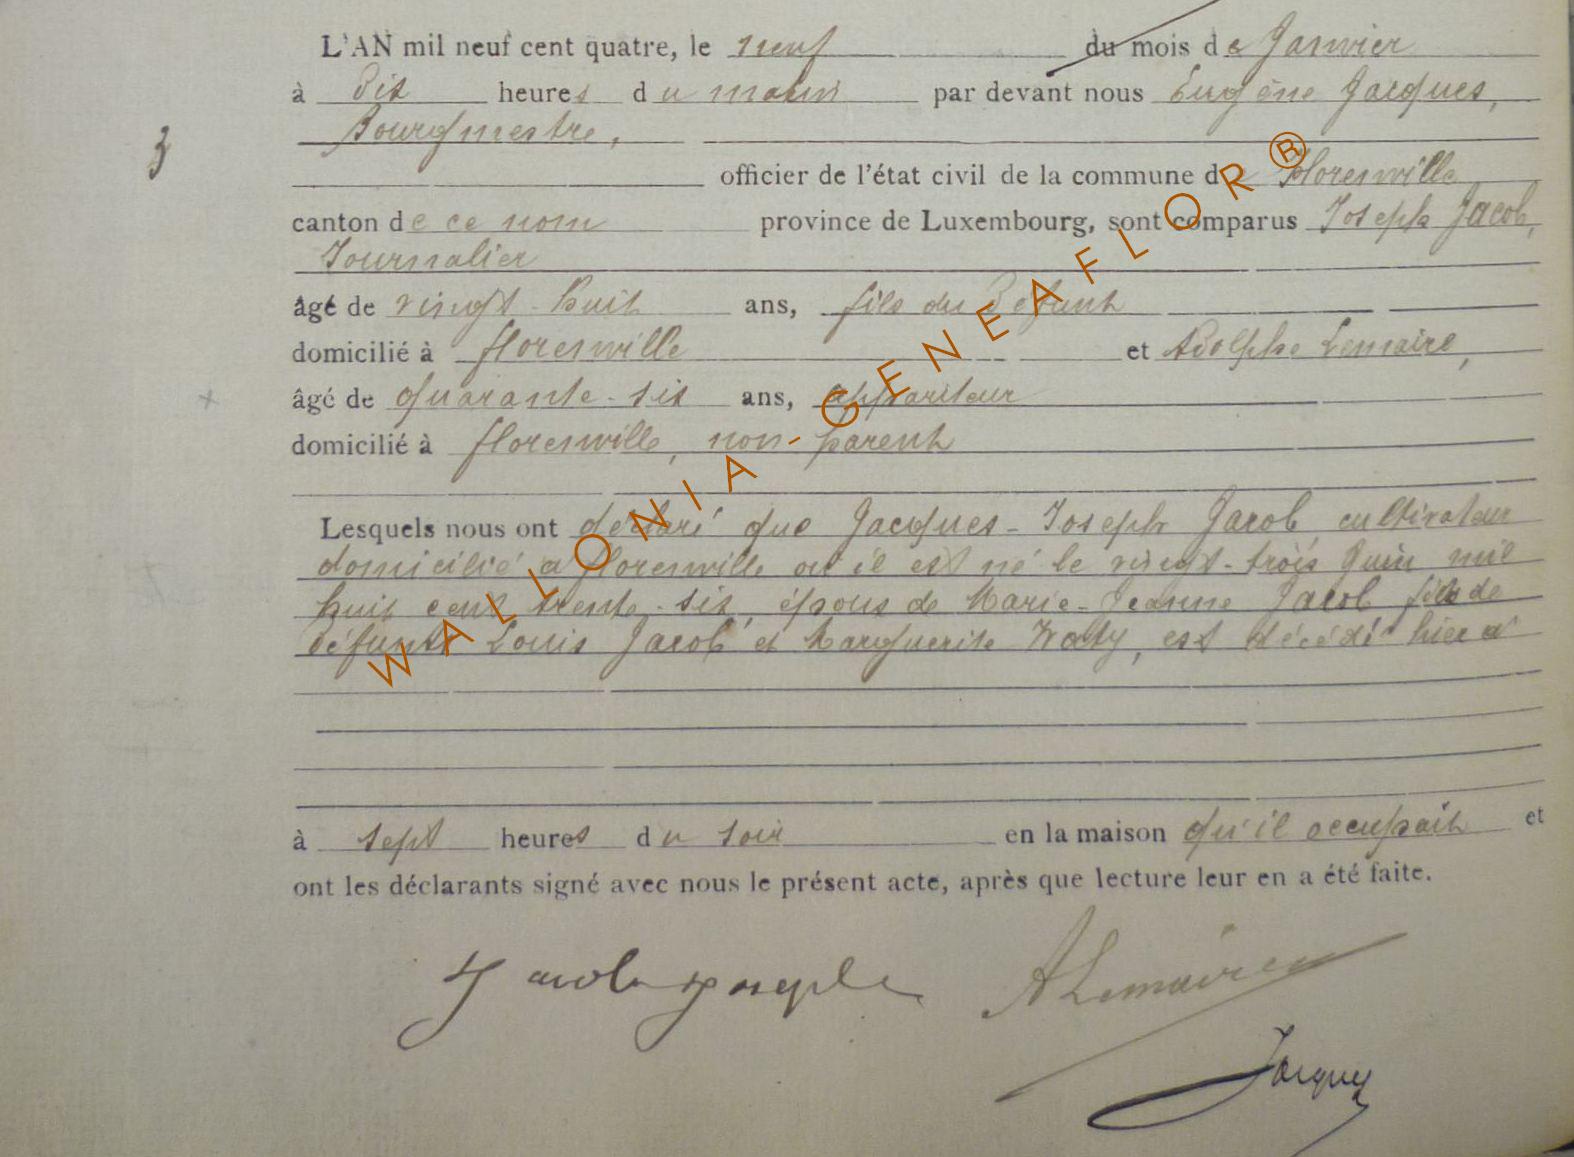 L'AN mil neuf cent quatre, le neuf du mois de Janvier
à Dix heures du matin par devant nous Eugène Jacques,
Bourgmestre,
3
officier de l'état civil de la commune de Florenville
canton de ce nom province de Luxembourg, sont comparus Joseph Jacob,
Journalier
âgé de vingt-huit ans, fils du Défunt
domicilié à florenville et Adolphe Lemaire,
âgé de quarante-six ans, appariteur
domicilié à florenville, non-parent
Lesquels nous ont déclaré que Jacques-Joseph Jacob, cultivateur
domicilié à florenville où il est né le vingt-trois Juin mil
huit cent trente-six, époux de Marie-Jeanne Jacob fils de
Défunts Louis Jacob et Marguerite Waty, est décédé hier à
à sept heures du soir en la maison qu'il occupait et
ont les déclarants signé avec nous le présent acte, après que lecture leur en a été faite.
Jacob joseph ALemaire
Jacques
WALLONIA-GENEAFLOR®